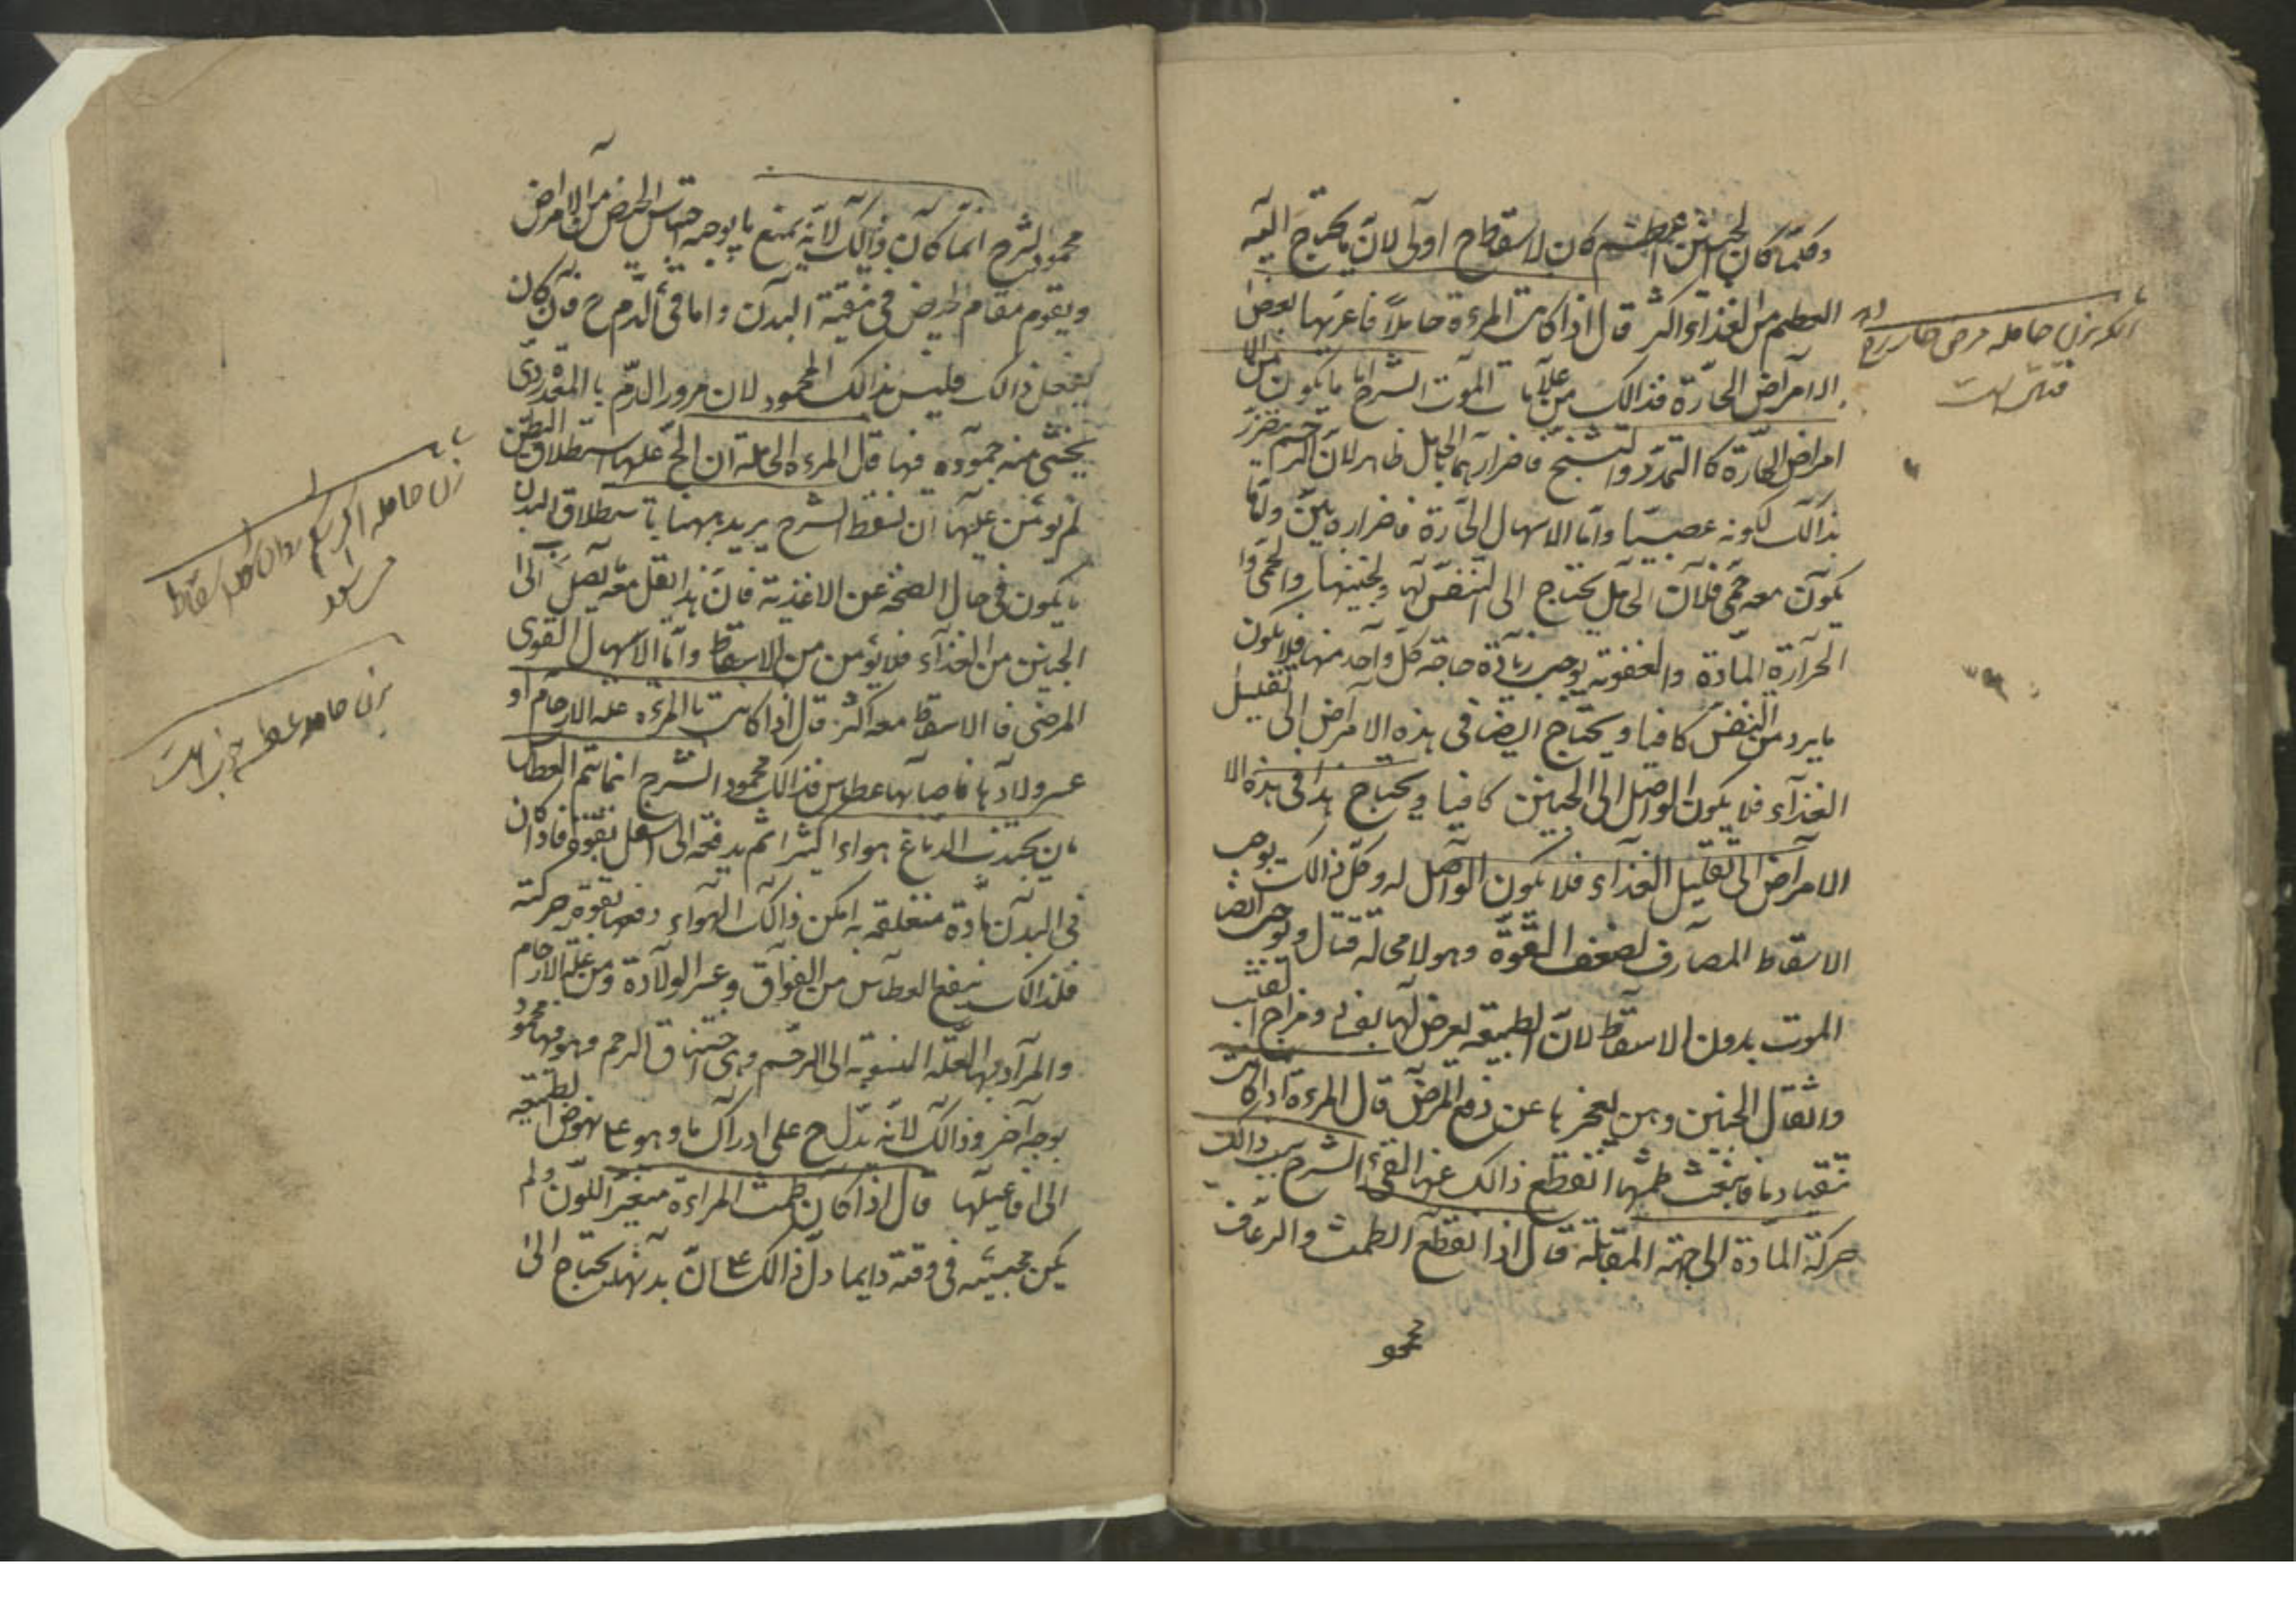 وكلما كان الجنين اعظم كان الاسقاط ح اولى لان ما يحتاج اليه
العظيم من الغذاء اكثر قال اذا كانت المرءة حاملا فاعرتها بعض
الامراض الحارة فذالك من علامات الموت الشرح اما ما يكون من الا
امراض الحارة كا التمدد والتشنج فاضرارهما بالحامل ظاهر لان الرحم يتضرر
بذالك لكونه عصبيا واما الاسهال الحارة فاضراره بين ولما
يكون معه حمى فلان الحامل يحتاج الى التنفس لها ولجنينها والحمى وا
الحرارة المادة والعفونة يوجب زيادة حاجة كل واحد منها فلا يكون
ما يرد من النفس كافيا ويحتاج ايضا فى هذه الامراض الى تقليل
الغذاء فلا يكون الواصل الى الجنين كافيا ويحتاج هذا فى هذه الا
الامراض الى تقليل الغذاء فلا يكون الواصل له وكل ذالك يوجب
الاسقاط المصارف لضعف القوة وهو لا محالة قتال ويوجب ايضا
الموت بدون الاسقاط لان الطبيعة يعرض لها بفساد مزاج
واثقال الجنين وهن يعجزها عن دفع المرض قال المرءة اذا كانت
تتقيا دما فانبعث طمثها انقطع ذالك عنها القئ الشرح سبب ذالك
حركة المادة الى الجهة المقابلة قال اذا انقطع الطمث والرعاف
محمو
اگر بزن حامله مرض حار
قتال است
محمود الشرح انما كان ذالك لانه يمنع ما يوجبه احتباس الحيض من الامراض
ويقوم مقام الحيض فى تنقية البدن واما قئ الدم ح فان كان
يفعل ذالك فليس بذالك المحمود لان مرور الدم با المعدة ردى
يخشى منه جموده فيها قال المرءة الحاملة ان الح عليها استطلاق البطن
لم يؤمن عليها ان تسقط الشرح يريد ههنا با ستطلاق البدن
ما يكون فى حال الصحة عن الاغذية فان هذا يقل معه يصل الى
الجنين من الغذاء فلا يؤمن من الاسقاط واما الاسهال القوى
المرضى فا الاسقاط معه اكثر قال اذا كانت با المرءة علة الارحام او
عسر ولادها فاصابها عطاس فذالك محمود الشرح انما يتم العطاس
بان يجتذب الدماغ هواء اكثيرا ثم يدفعه الى اسفل بقوة فاذا كان
فى البدن مادة متعلقة به امكن ذالك الهواء دفعها بقوة حركته
فلذالك ينفع العطاس من الفواق وعسر الولادة ومن علة الارحام
والمراد بها العلة المنسوبة الى الرحم وهى اختناق الرحم وهو فيها محمود
بوجه آخر وذالك لانه يدل ح على ادراك ما وهو ع نهوض الطبيعة
الى افاعيلها قال اذا كان طمث المراءة متغير اللون ولم
يكن مجيئه فى وقته دايما دل ذالك ع ان بدنها يحتاج الى
زن حامله اگر شكم روان كند اسقاط
بزن حامله عطسه خوب است